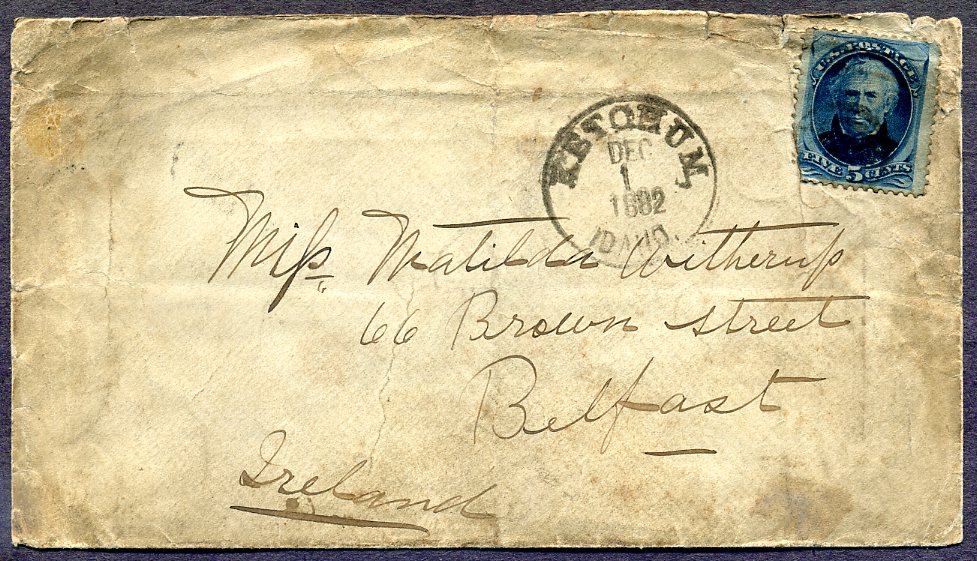 U.S. POSTAGE
FIVE 5 CENTS
KETCHUM,
DEC
1
1882
IDAHO.
Miss Matilda Witherup
66 Brown street
Belfast
Ireland